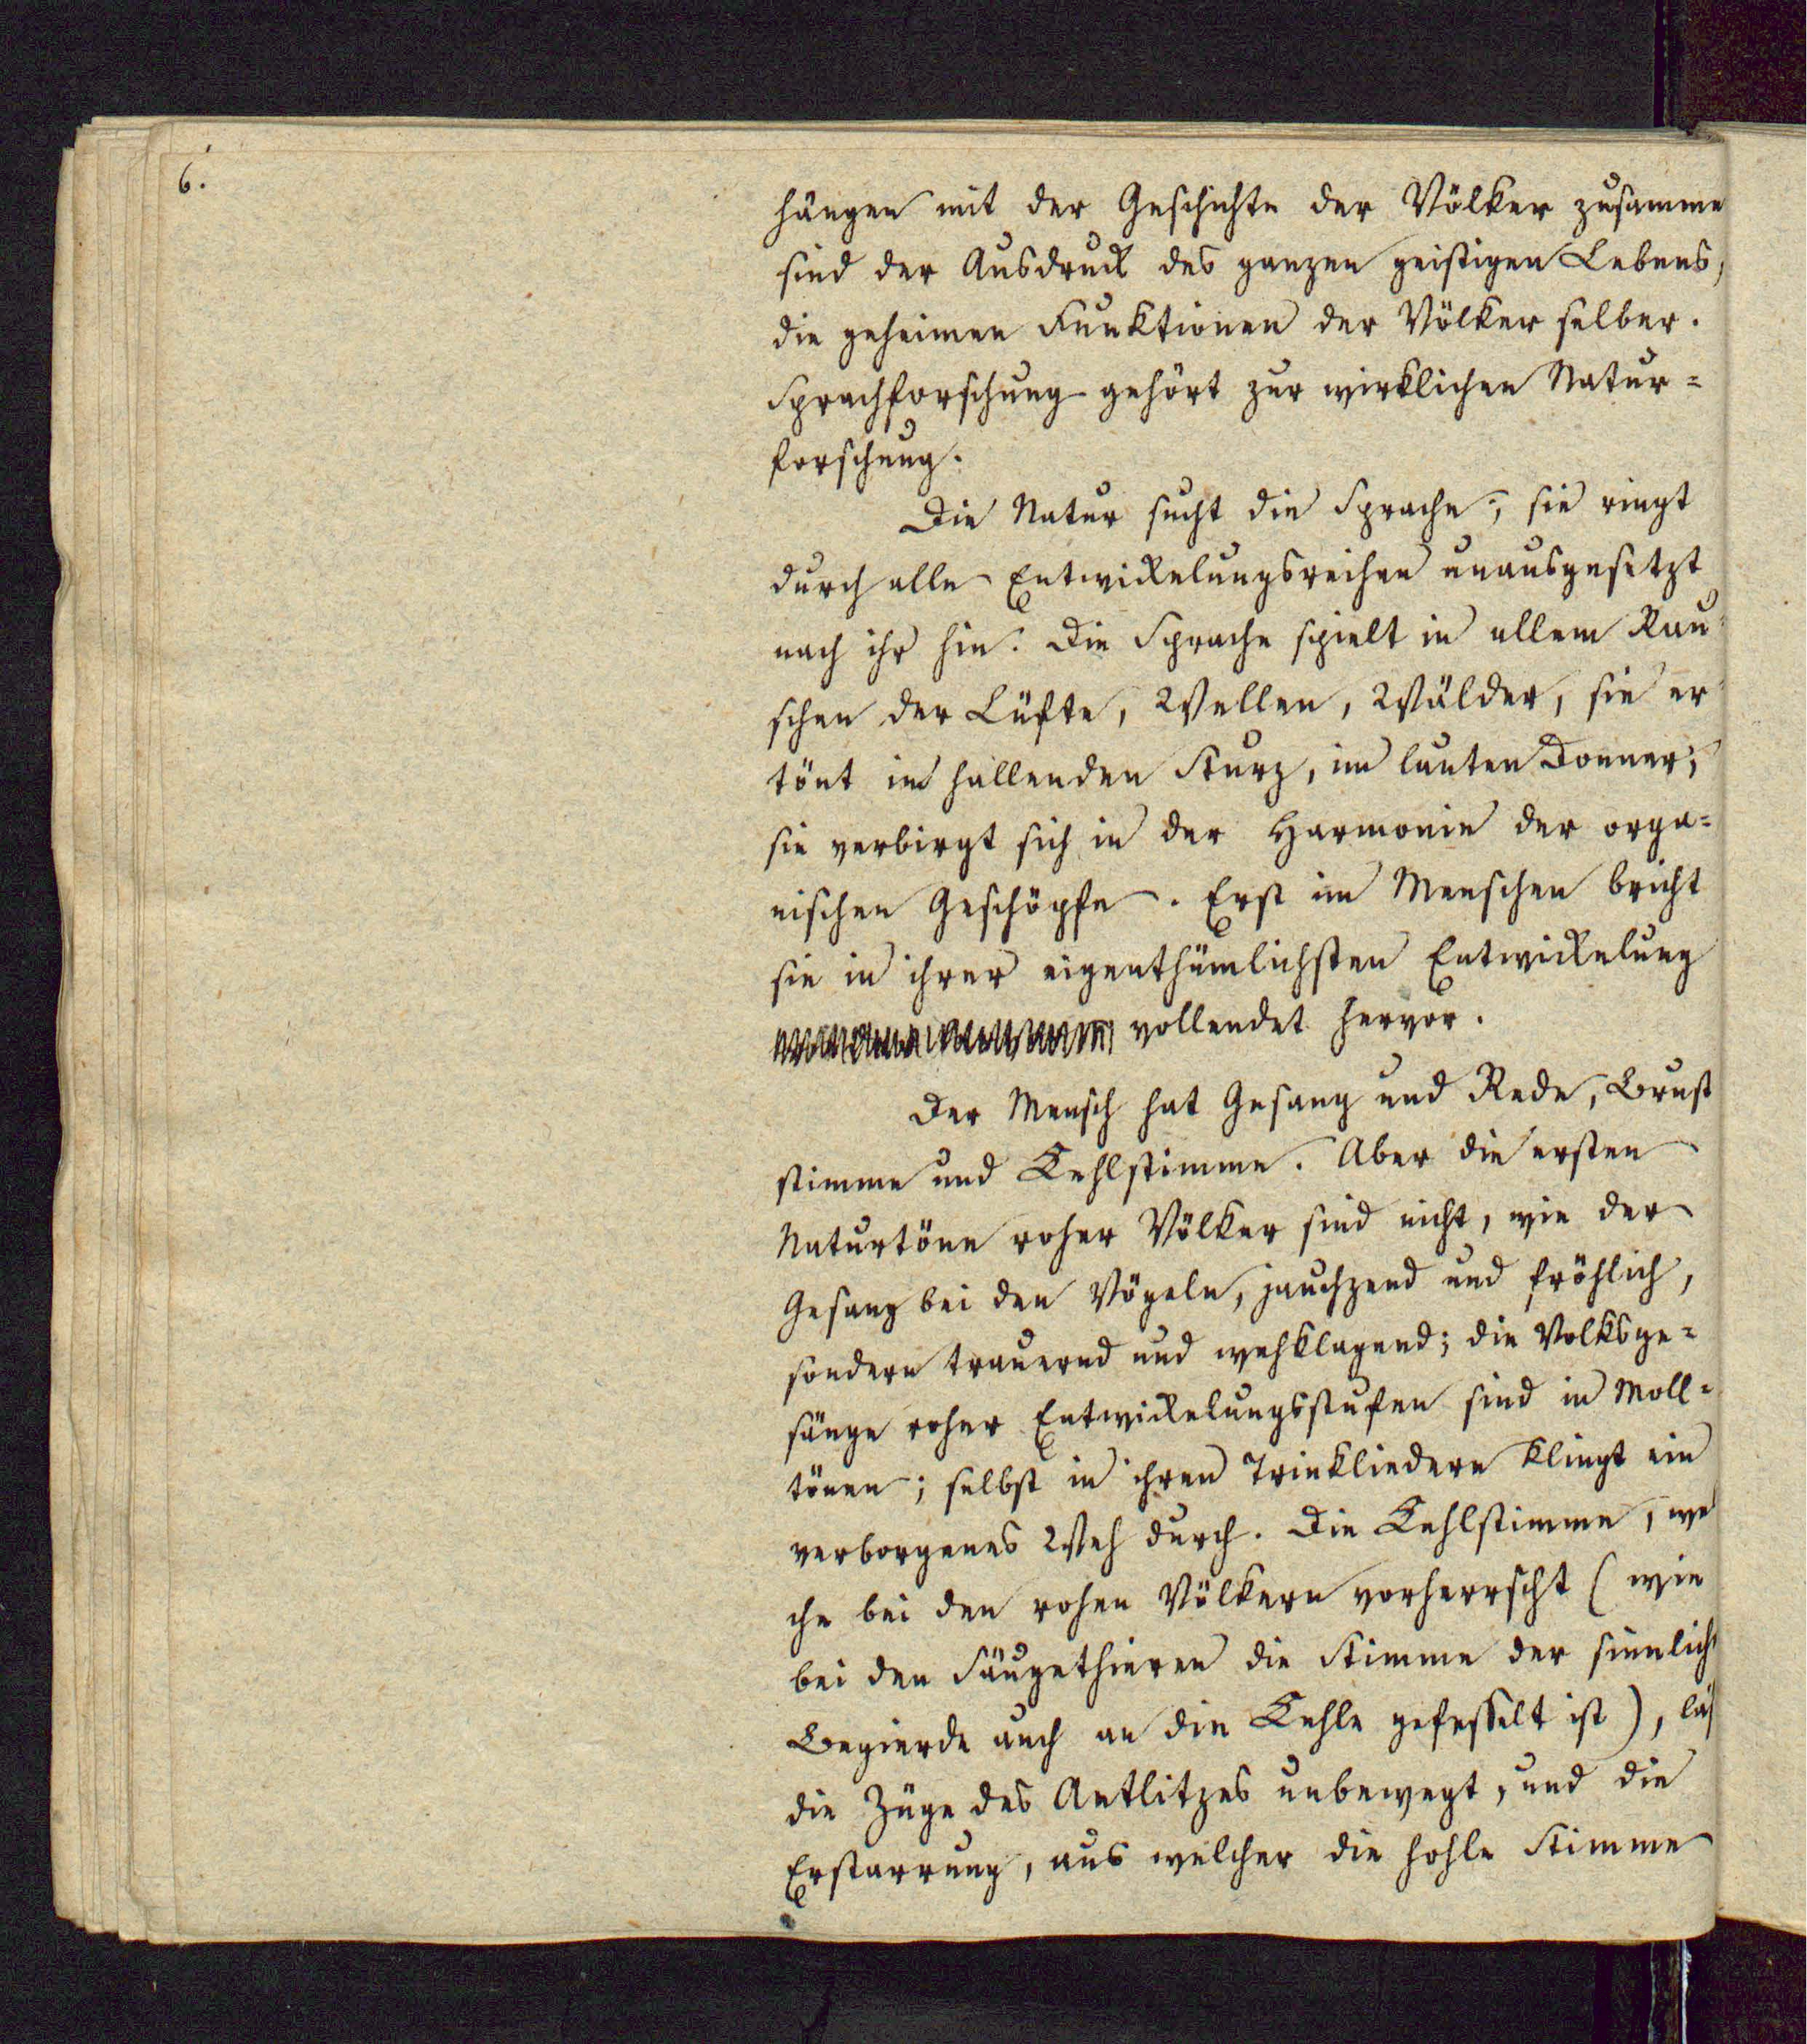 6.
hängen mit der Geschichte der Völker zusamme
sind der Ausdruck des ganzen geistigen Lebens,
die geheimen Funktionen der Völker selber.
Sprachforschung gehört zur wirklichen Natur-
forschung.
Die Natur sucht die Sprache; sie ringt
durch alle Entwickelungsreihen unausgesetzt
nach ihr hin. Die Sprache spielt in allem Rau-
schen der Lüfte, Wellen, Wälder, sie er-
tönt im hallenden Sturz, im lauten Donner;
sie verbirgt sich in der Harmonie der orga-
nischen Geschöpfe. Erst im Menschen bricht
sie in ihrer eigenthümlichsten Entwickelung
vollendet hervor.
Der Mensch hat Gesang und Rede, Brust
stimme und Kehlstimme. Aber die ersten
Naturtöne roher Völker sind nicht, wie der
Gesang bei den Vögeln, jauchzend und fröhlich,
sondern trauernd und wehklagend; die Volksge-
sänge roher Entwickelungsstufen sind in Moll-
tönen; selbst in ihren Trinkliedern klingt ein
verborgenes Weh durch. Die Kehlstimme, we
che bei den rohen Völkern vorherrscht (wie
bei den Säugethieren die Stimme der sinnlich
Begierde auch an die Kehle gefesselt ist), läs
die Züge des Antlitzes unbewegt, und die
Erstarrung, aus welcher die hohle Stimme